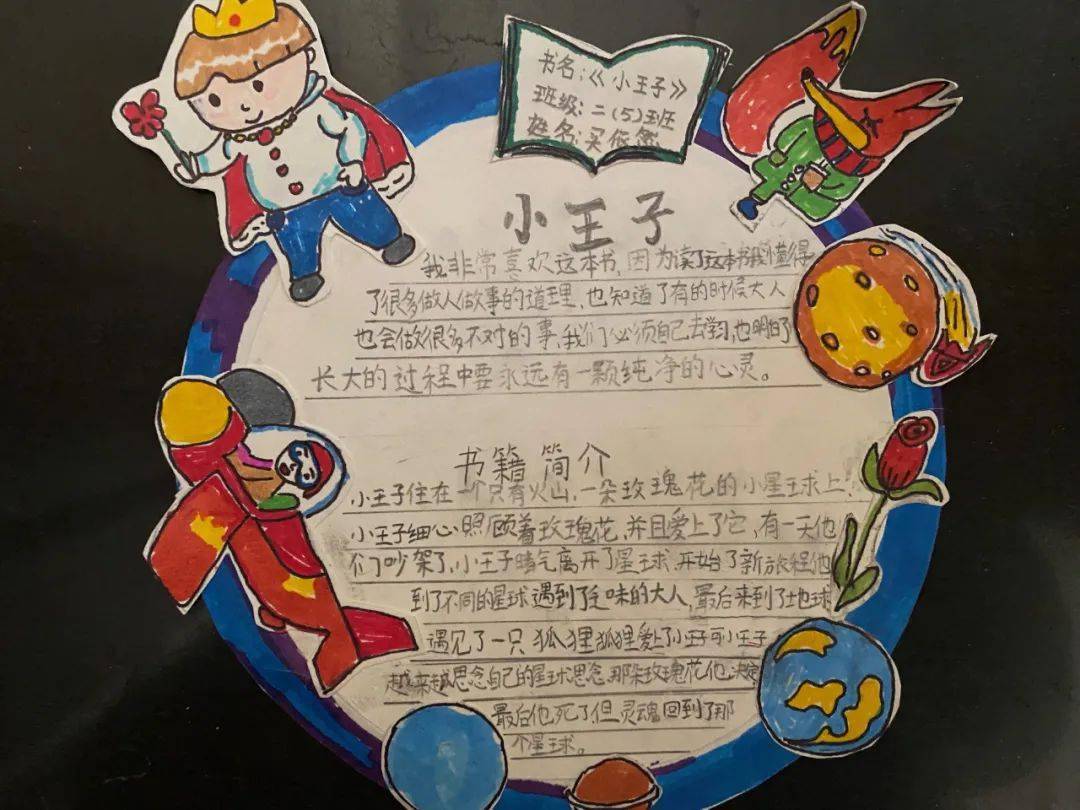 书名:《小王子》
班级:二(5)班
姓名:买依然
小王子
我非常喜欢这本书,因为读了这本书我懂得
了很多做人做事的道理,也知道了有的时候大人
也会做很多不对的事,我们必须自己去学习,也明白了
长大的过程中要永远有一颗纯净的心灵。
书籍简介
小王子住在一个只有火山,一朵玫瑰花的小星球上!
小王子细心照顾着玫瑰花,并且爱上了它,有一天他
们吵架了,小王子赌气离开了星球,开始了新旅程他
到了不同的星球遇到了乏味的大人,最后来到了地球
遇见了一只狐狸狐狸爱上了小王子可小王子
越来越思念自己的星球思念那朵玫瑰花他决定
最后他死了但灵魂回到了那
个星球。